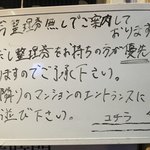 今整理券無しでご案内して
おります
だし整理券をお持ちの方が優先
ますのでご了承下さい。
隣りのマンションのエントランスに
お並び下さい。
コチラ